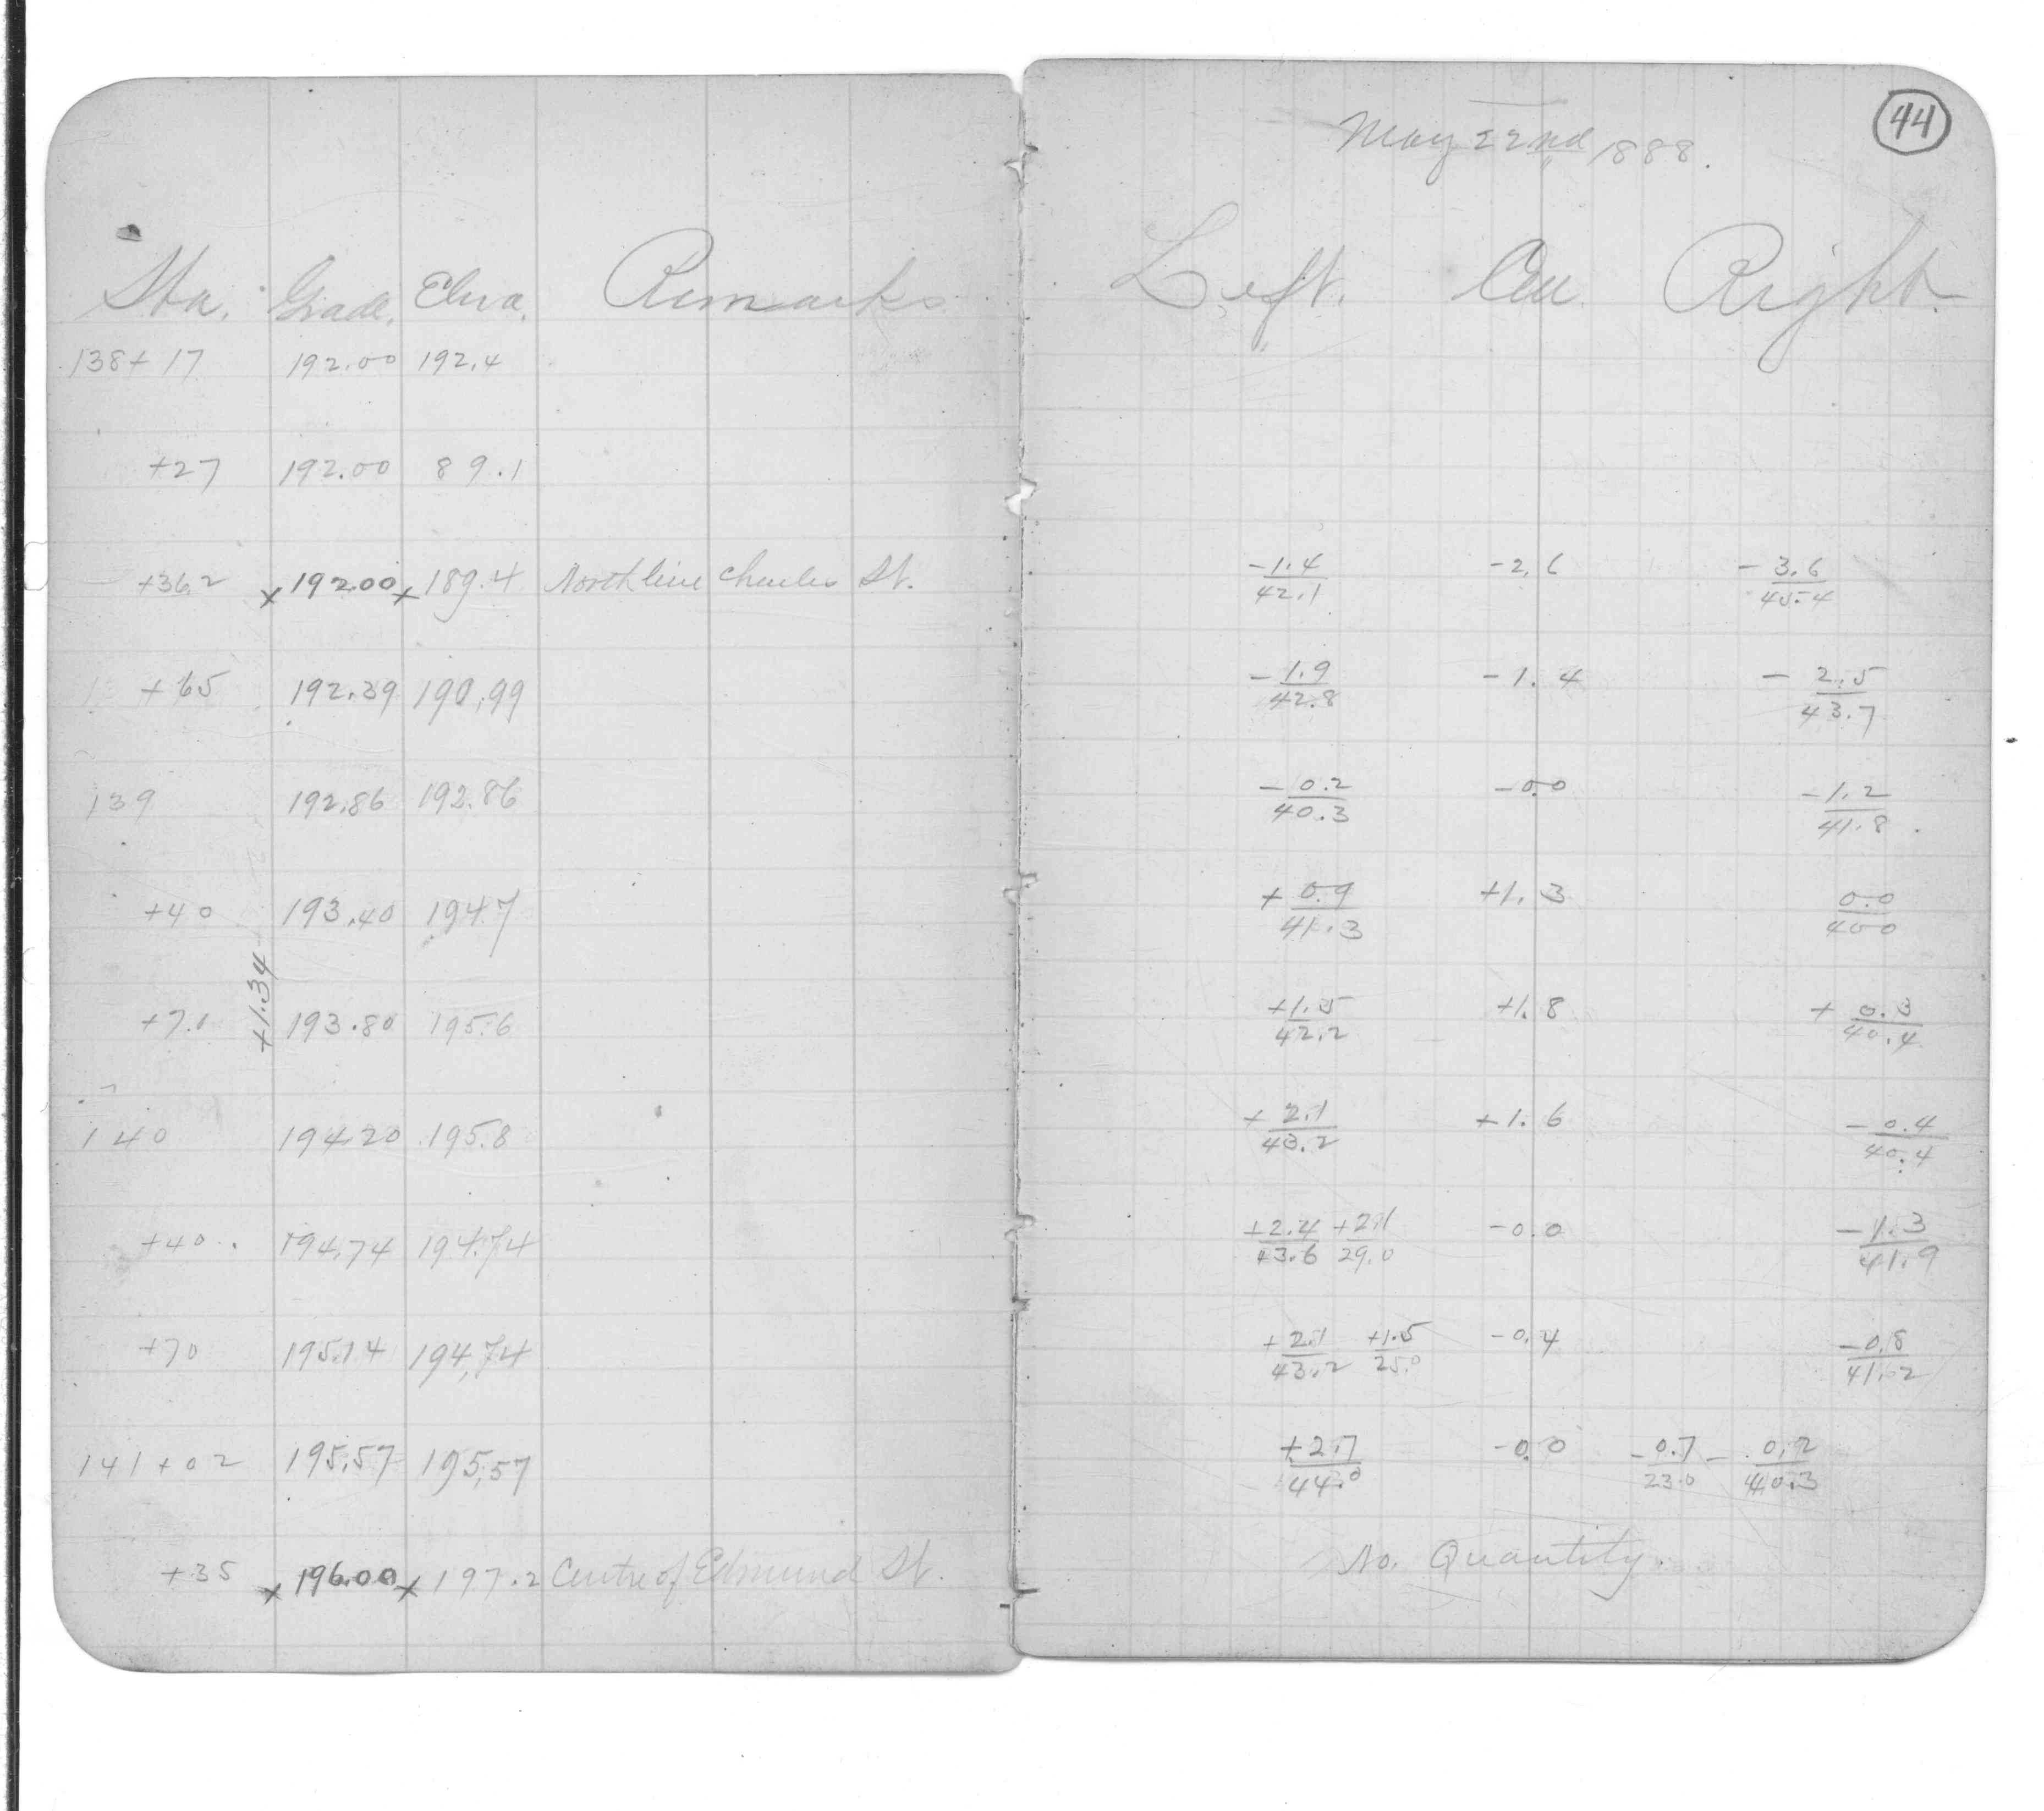 44
May 22nd 1888.
Sta. Grade. Eleva. Remarks
Left. Cen. Right.
138+17 192.00 192.4
+27 192.00 89.1
+36.2 x 192.00 x 189.4 North line Charles St. -1.4/42.1 -2.6 -3.6/45.4
+65 192.39 190.99 -1.9/42.8 -1.4 -2.5/43.7
139 192.86 192.86 -0.2/40.3 -0.0 -1.2/41.8
+40 193.40 194.7 +0.9/41.3 +1.3 0.0/40.0
+70 193.80 195.6 +1.5/42.2 +1.8 +0.3/40.4
+1.34
140 194.20 195.8 +2.1/43.2 +1.6 -0.4/40.4
+40 194.74 194.74 +2.4/43.6 +2.1/29.0 -0.0 -1.3/41.9
+70 195.14 194.74 +2.1/43.2 +1.5/25.0 -0.4 -0.8/41.2
141+02 195.57 195.57 +2.7/44.0 -0.0 -0.7/23.0 -0.2/40.3
+35 x 196.00 x 197.2 Centre of Edmund St. No. Quantity.